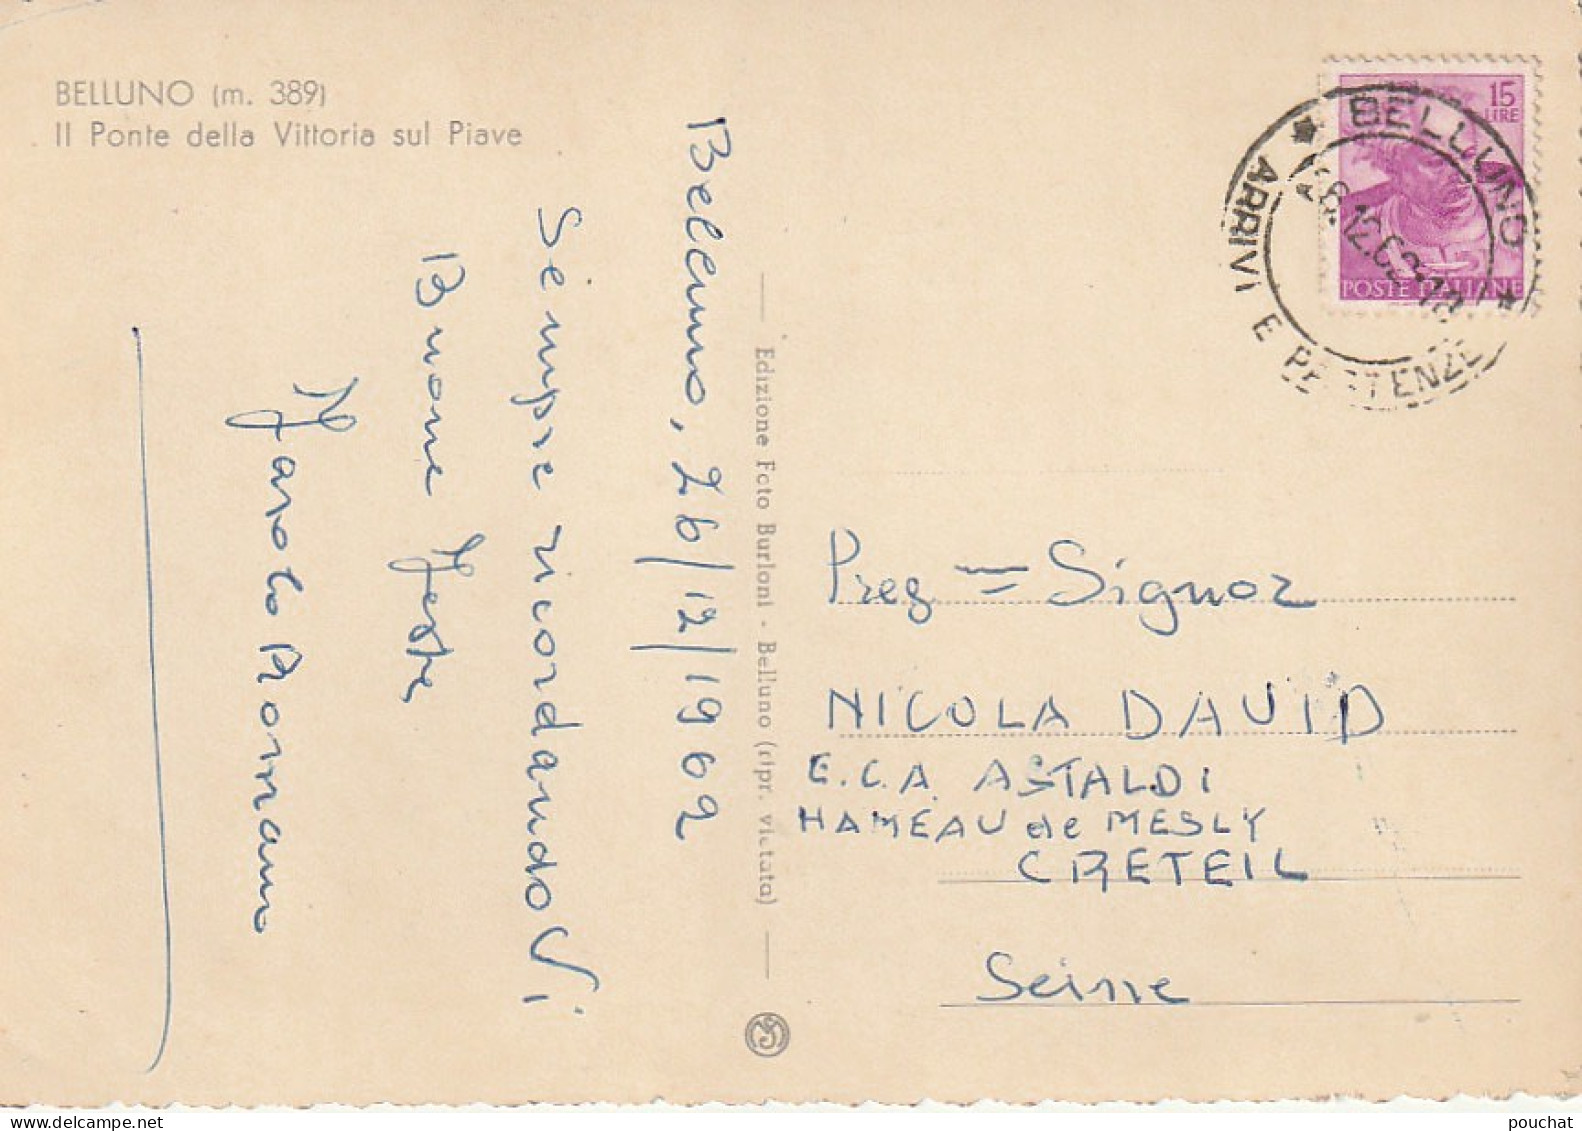 BELLUNO (m. 389)
Il Ponte della Vittoria sul Piave
Belluno, 26/12/1962
Sempre ricordandovi
Buone Feste
Romano
Edizione Foto Burloni - Belluno (ripr. vietata)
15
LIRE
POSTE ITALIANE
BELLUNO
ARRIVI E PARTENZE
Preg = Signor
NICOLA DAVID
E.C.A. ASTALDI
HAMEAU de MESLY
CRETEIL
Seine
pouchat